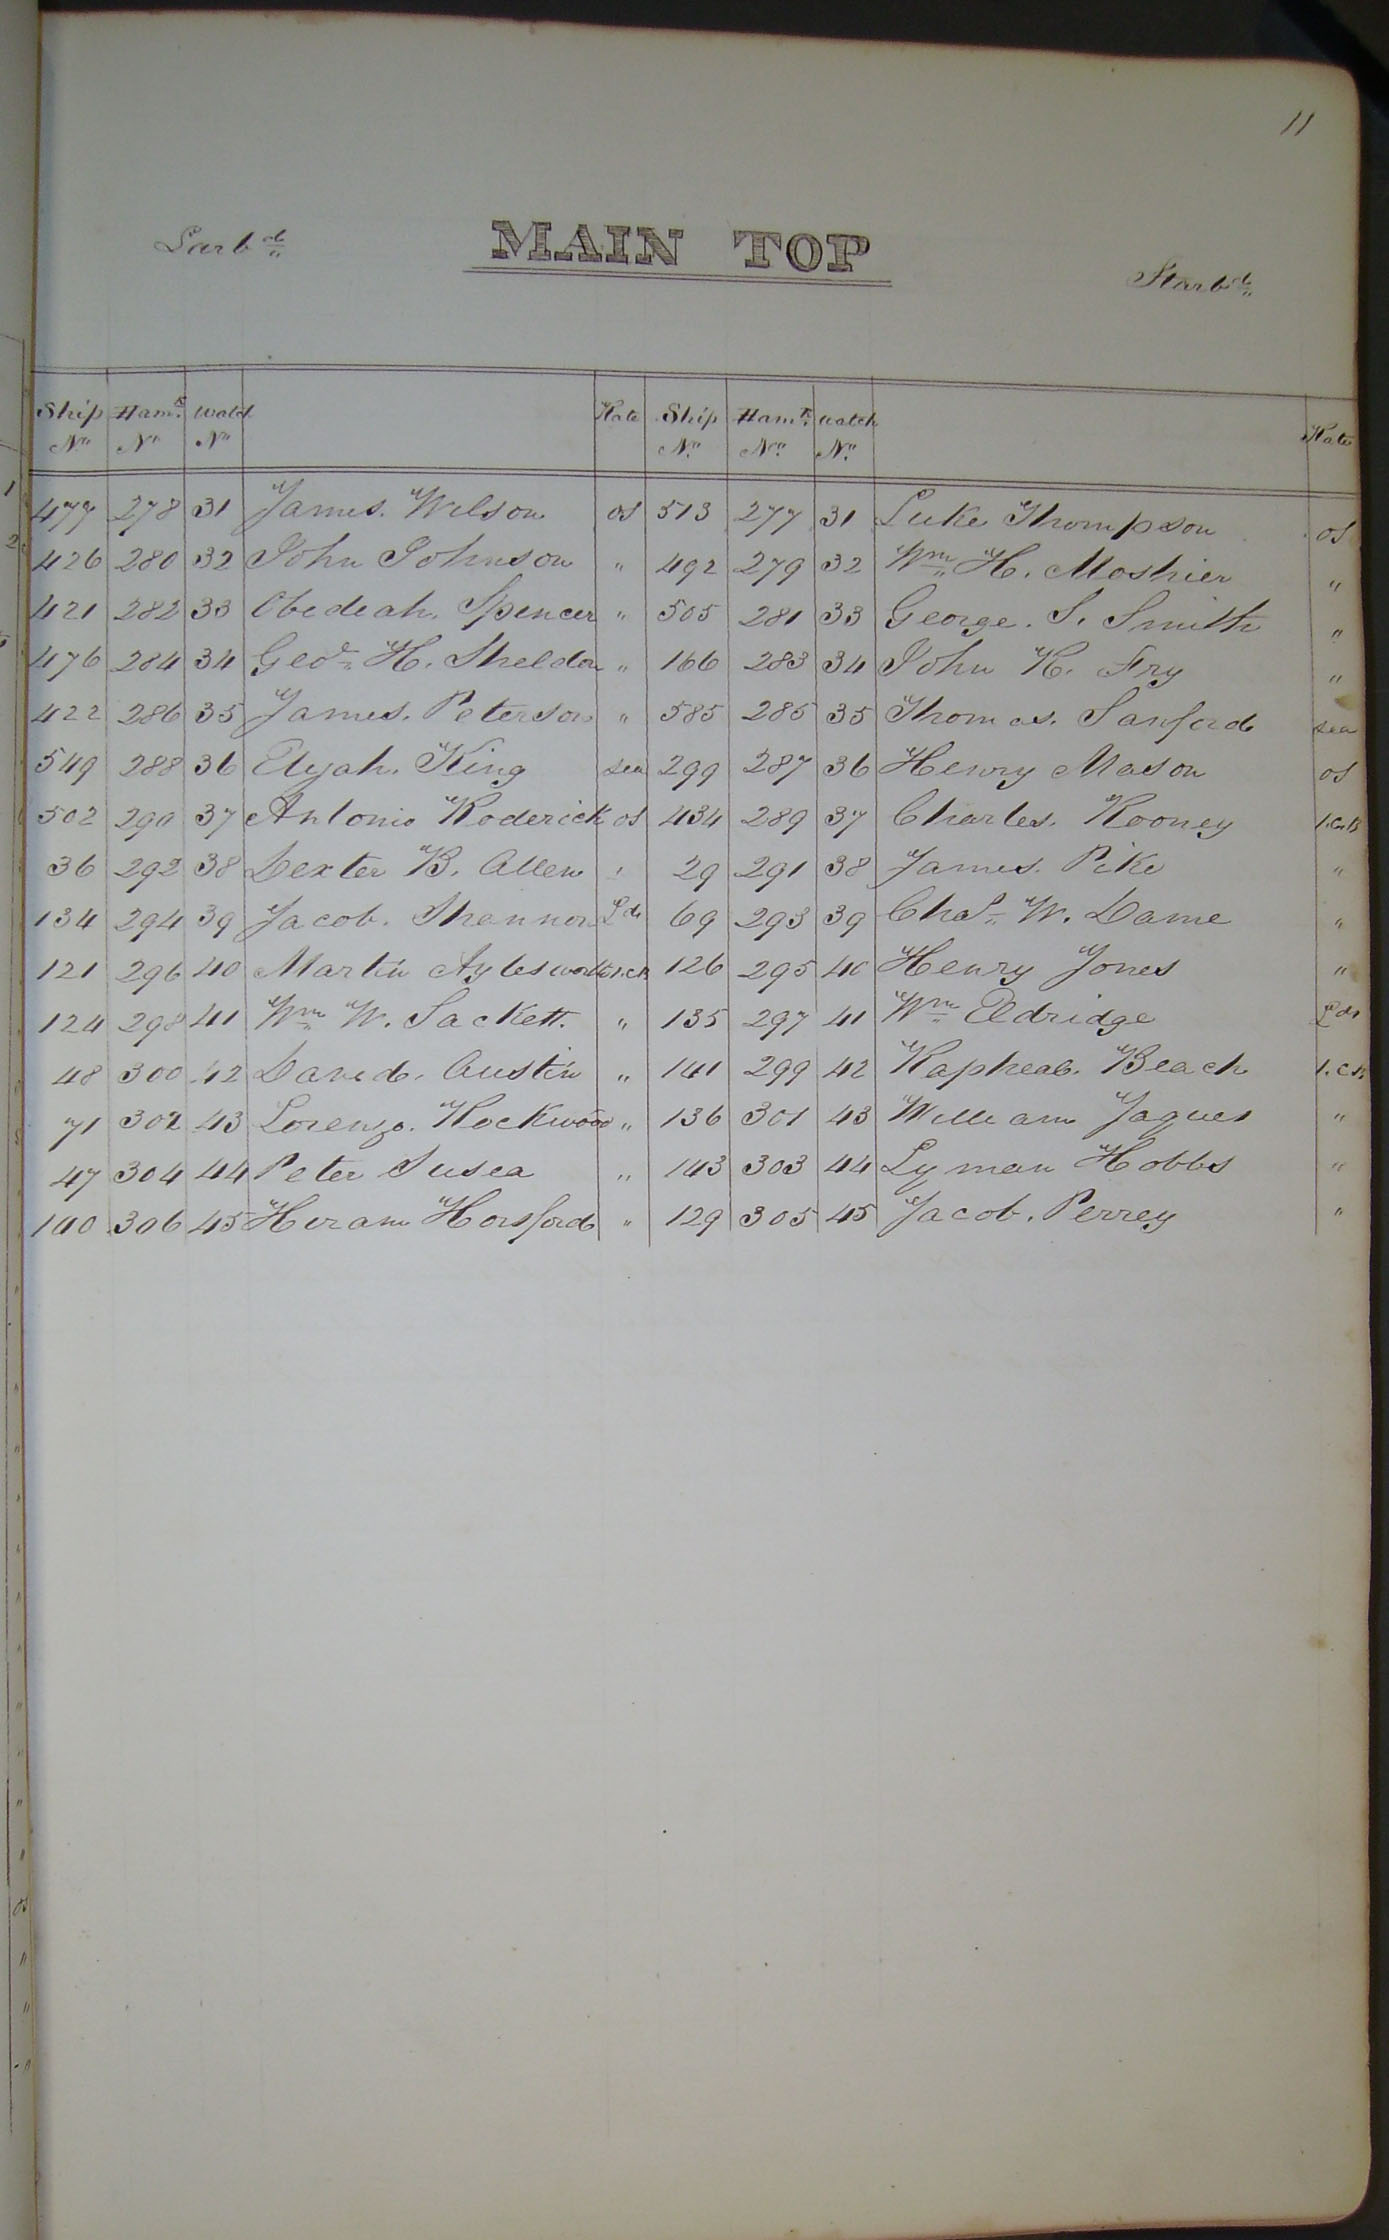 11
Larbd MAIN TOP Starbd
Ship Hamk Watch Rate Ship Hamk Watch Rate
No No No No No No
477 278 31 James. Wilson os 513 277 31 Luke Thompson os
426 280 32 John Johnson " 492 279 32 Wm H. Moshier "
421 282 33 Obedeah. Spencer " 505 281 33 George. S. Smith "
476 284 34 Geoe H. Sheldon " 166 283 34 John K. Fry "
422 286 35 James. Peterson " 585 285 35 Thomas. Sanford sea
549 288 36 Elyah. King sea 299 287 36 Henry Mason os
502 290 37 Antonio Roderick os 434 289 37 Charles. Rooney 1.C.B
36 292 38 Dexter B. Allen " 29 291 38 James. Pike "
134 294 39 Jacob. Shannon Lds 69 293 39 Chas W. Dame "
121 296 40 Martin Aylesworth 1.C.B 126 295 40 Henry Jones "
124 298 41 Wm W. Sackett. " 135 297 41 Wm Eldridge Lds
48 300 42 David. Austin " 141 299 42 Rapheal. Beach 1.C.B
71 302 43 Lorenzo. Rockwood " 136 301 43 William Jaques "
47 304 44 Peter Susea " 143 303 44 Lyman Hobbs "
140 306 45 Hiram Horsford " 129 305 45 Jacob. Perrey "